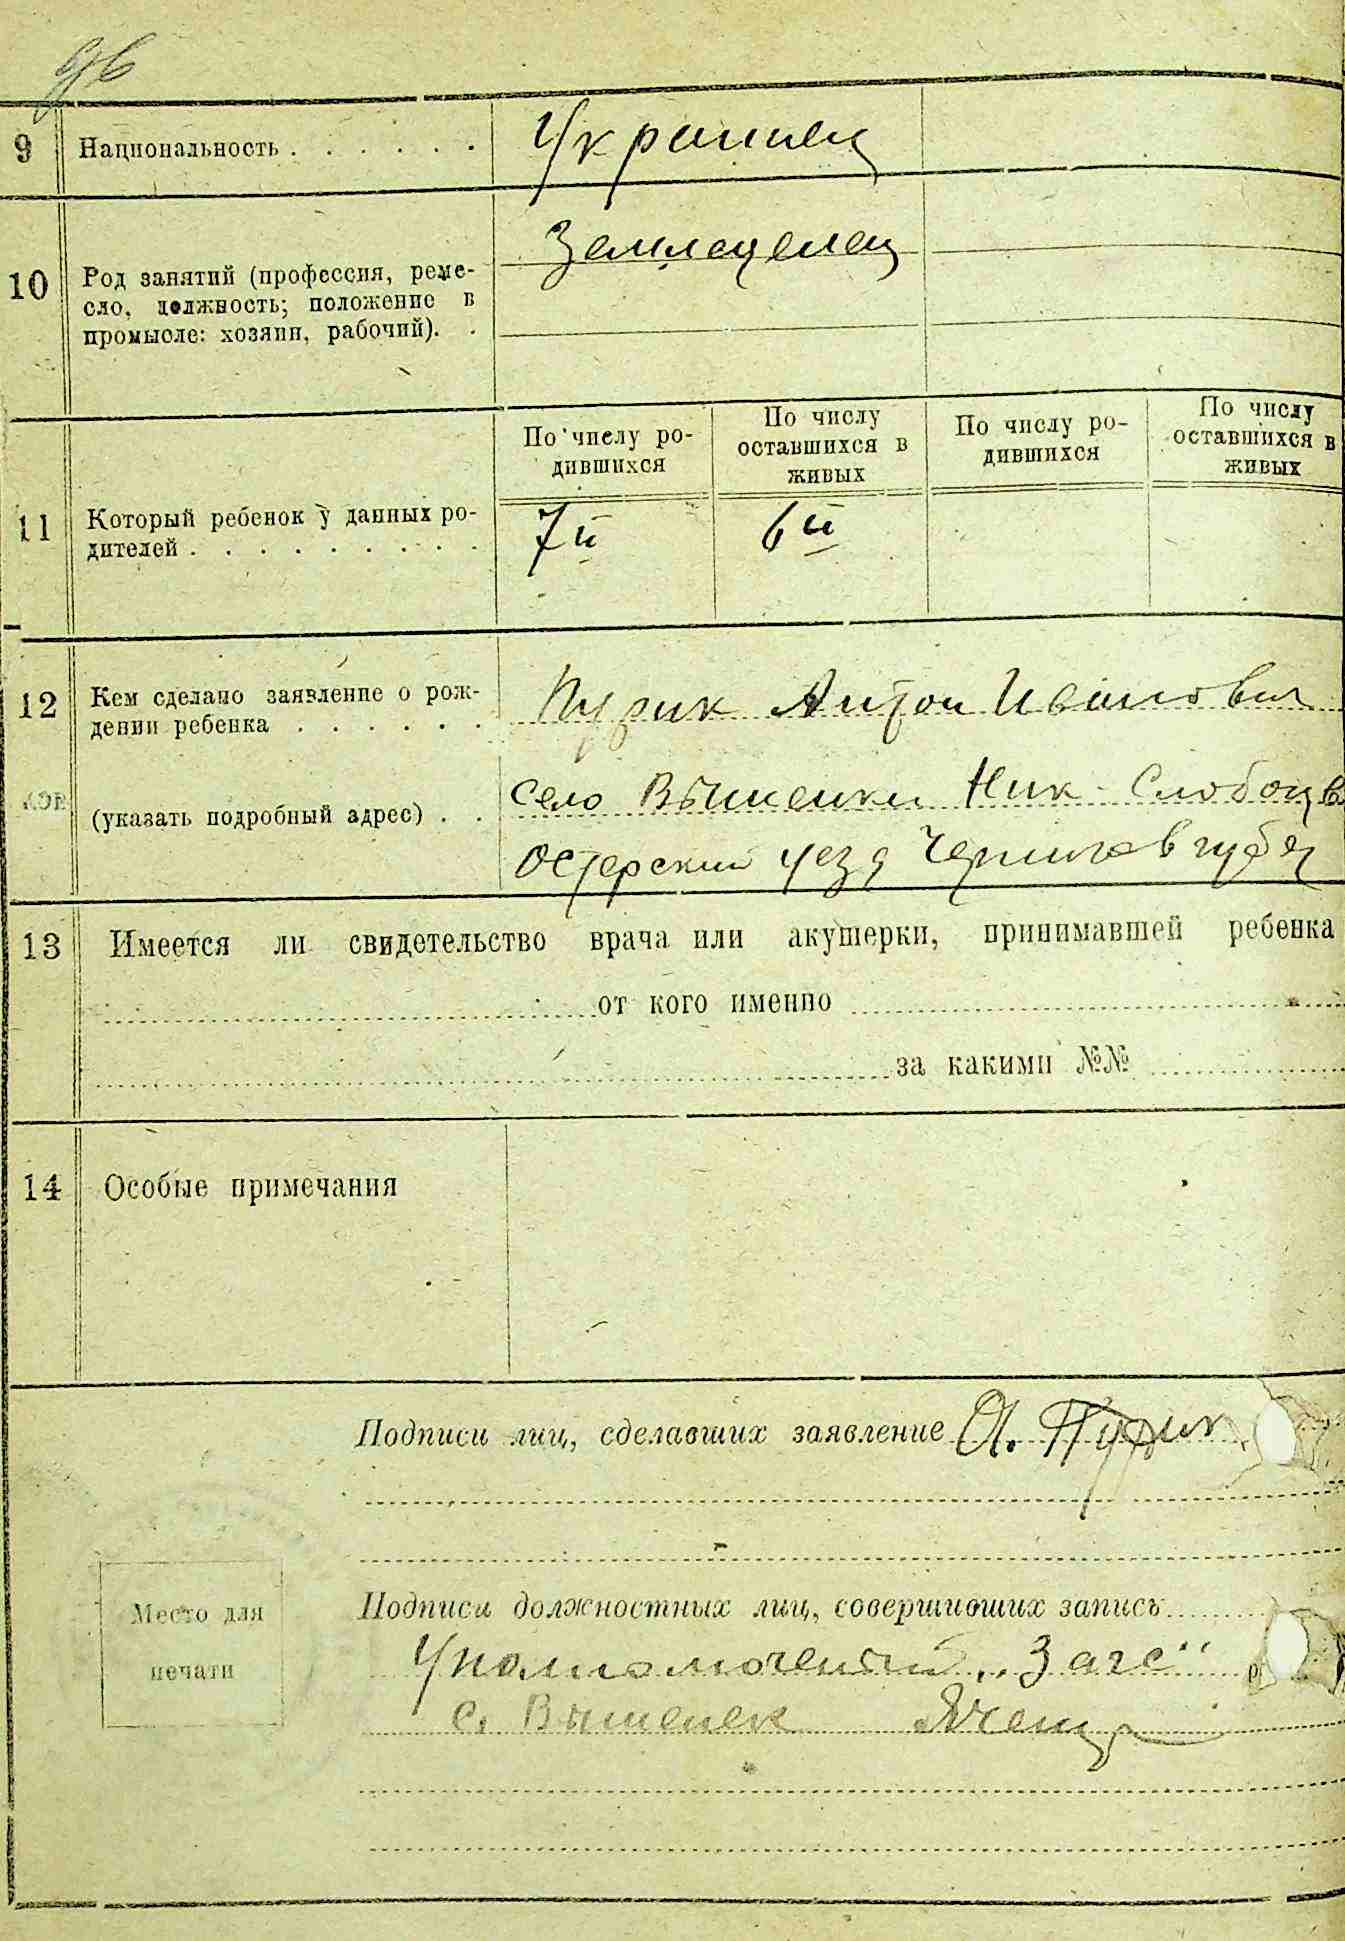 96
9 Национальность . . . . . . Украинец
10 Род занятий (профессия, реме-
сло, должность; положение в
промысле: хозяин, рабочий). .
Земледелец
По числу ро-
дившихся
По числу
оставшихся в
живых
По числу ро-
дившихся
По числу
оставшихся в
живых
11 Который ребенок у данных ро-
дителей . . . . . . . . .
7й 6й
12 Кем сделано заявление о рож-
дении ребенка . . . . . .
Пурик Антон Иванович
(указать подробный адрес) . .
село Вишенки Ник-Слободв
Остерский уезд Чернигов губ
13 Имеется ли свидетельство врача или акушерки, принимавшей ребенка
от кого именно
за какими №№
14 Особые примечания
Подписи лиц, сделавших заявление А. Пурик
Подписи должностных лиц, совершивших запись
Место для
печати
Уполномоченый „Загс"
с. Вишенек